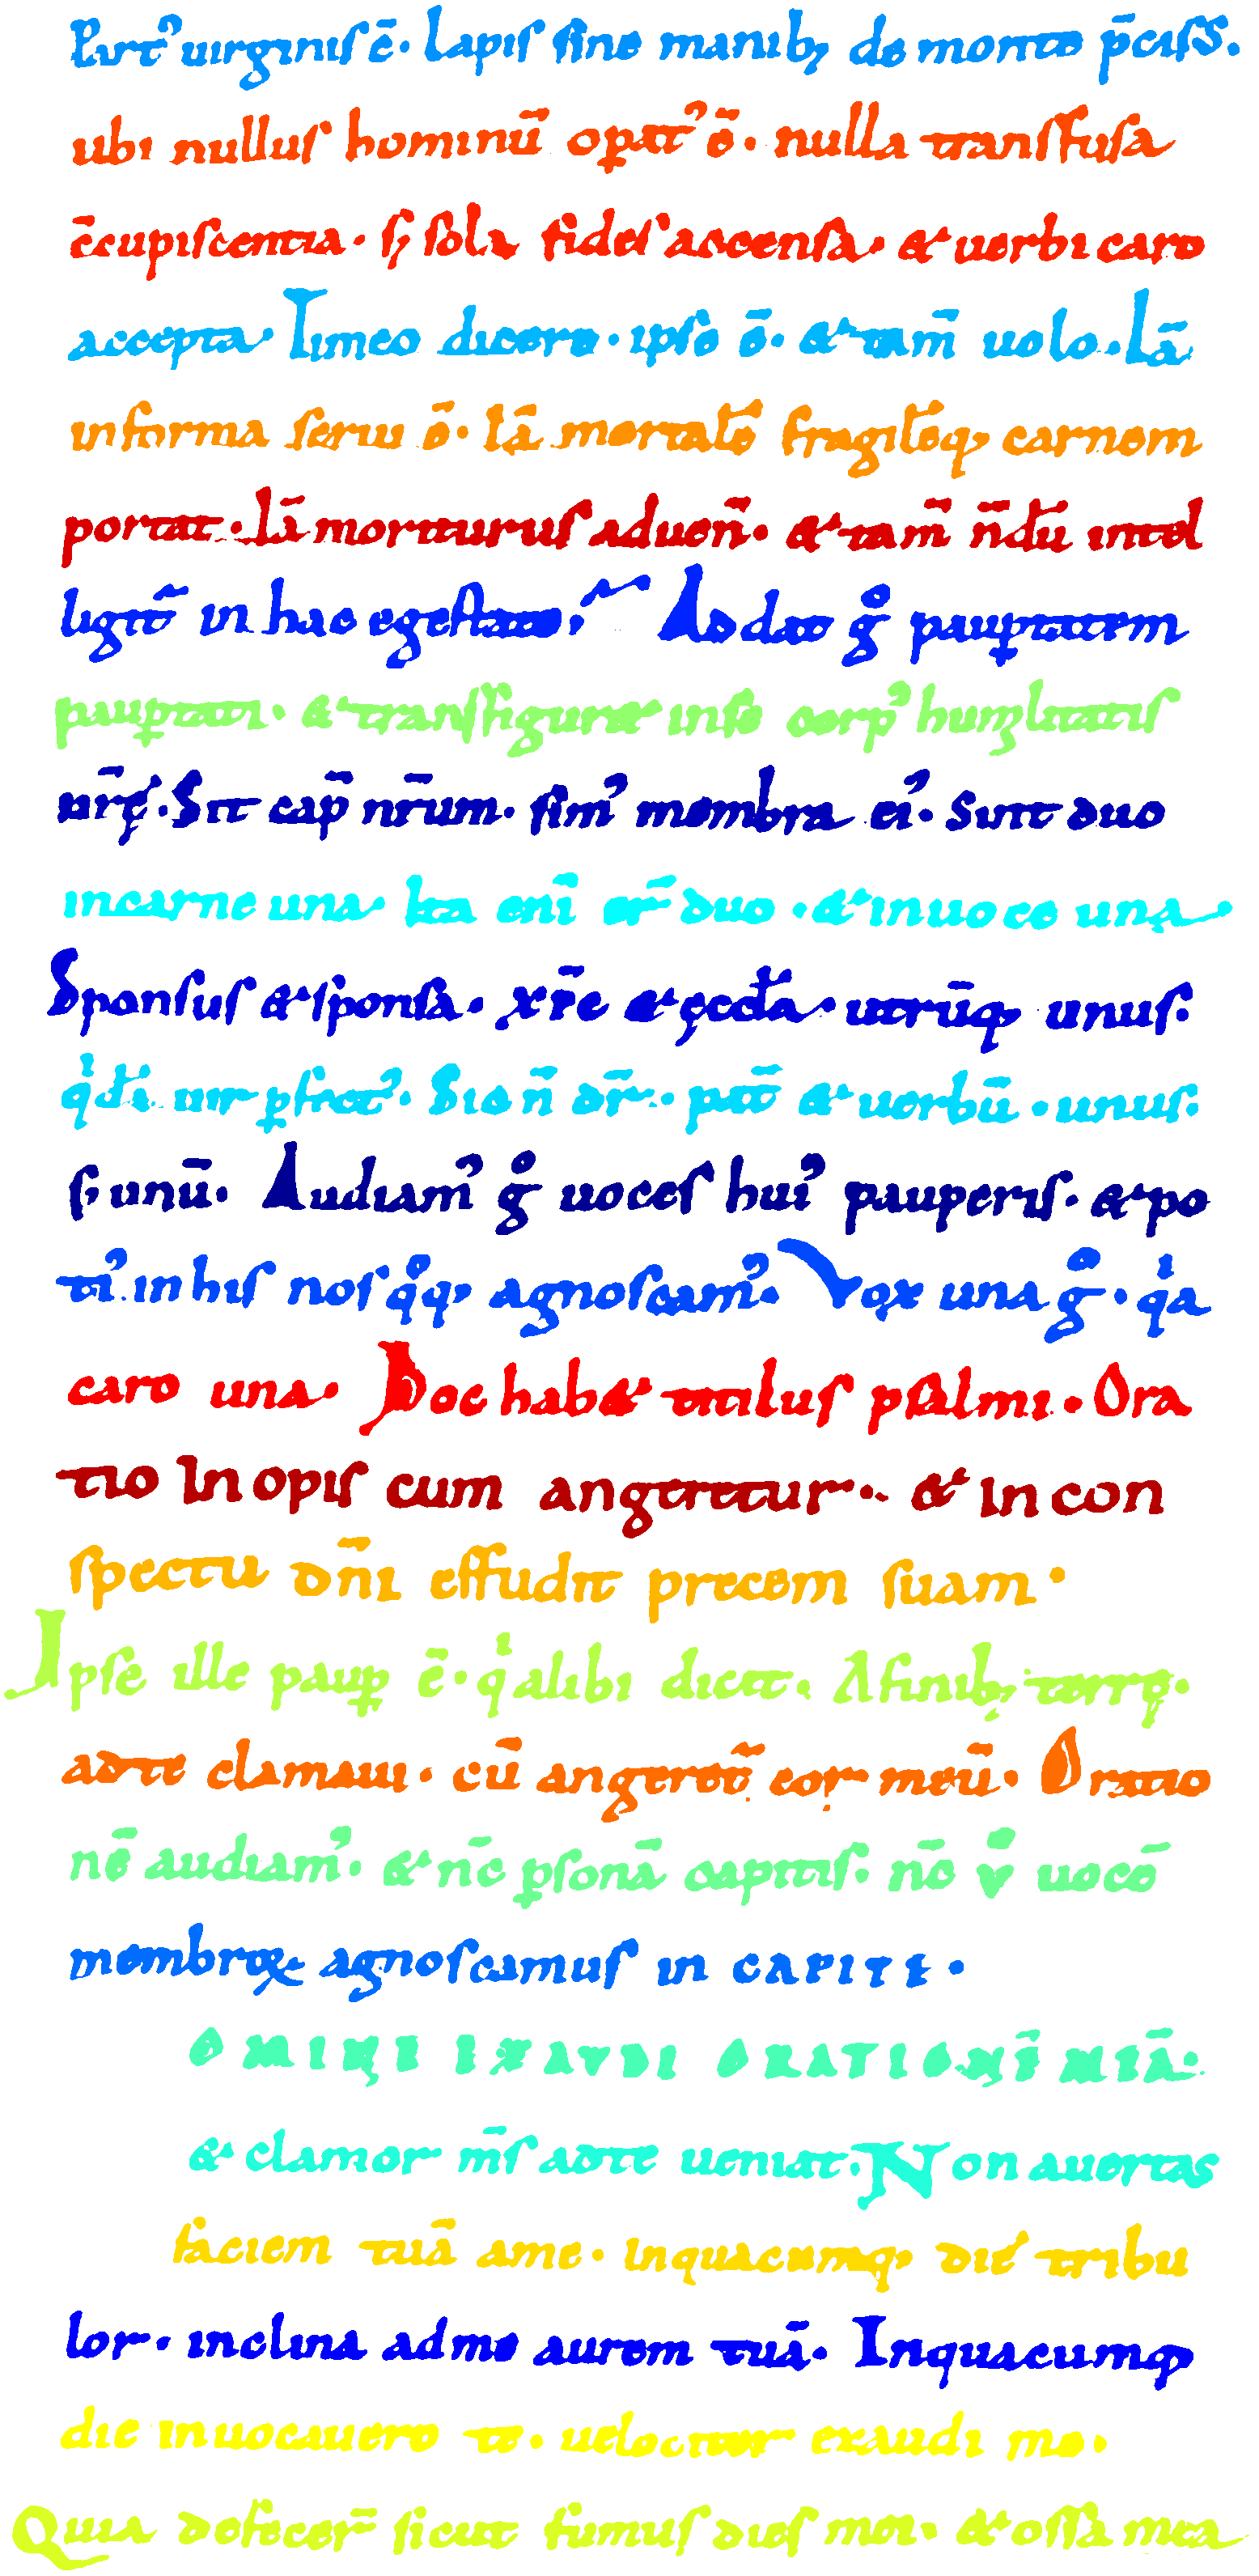 Part᾽ uirginis ē. Lapis sine manib; de monte p̄ciss᾽.
ubi nullus hominū op̲at᾽ ē. nulla transfusa
c̄cupiscentia. s; sola fides accensa. & uerbi caro
accepta. Timeo dicere. ipse ē. & tam̄ uolo. Iā
in forma serui ē. Iā mortalē fragilēq; carnem
portat. Iā moriturus aduen̄. & tam̄ n̄dū intel
ligit̄ in hac egestate. Addat g̊ paup̲tatem
paup̲tati. & transfiguret in se corp᾽ humilitatis
nr̄ę. Sit cap̄ nr̄um. sim᾽ membra ei᾽. Sint duo
in carne una. Ita eni̅ er̄ duo. & in uoce una
Sponsus & sponsa. xp̄c & ęccła. utrūq; unus.
qͥdā uir p̲fect᾽. Sic n̄ dr̄. pat̄ & uerbū. unus.
s; unū. Audiam᾽ g̊ uoces hui᾽ pauperis. & po
ti᾽ in his nos qͦq; agnoscam᾽. Vox una g̊. qͥa
caro una. Hoc habet titulus psalmi. Ora
tio Inopis cum angeretur. & in con
spectu dn̄i effudit precem suam.
Ipse ille paup̲ ē. qͥ alibi dicit. A finib; terrę.
ad te clamaui. cū angeret̄ cor meū. Oratio
nē audiam᾽. & n̄c p̲sonā capitis. n̄c v̊ uocē
membroꝝ agnoscamus in CAPITE.
OMINE EXAUDI ORATIONĒ MEĀ.
& clamor m̄s ad te ueniat. Non auertas
faciem tuā a me. in quacumq; die tribu
lor. inclina ad me aurem tuā. In quacumq;
die inuocauero te. uelociter exaudi me.
Quia defecer̄ sicut fumus dies mei. & ossa mea